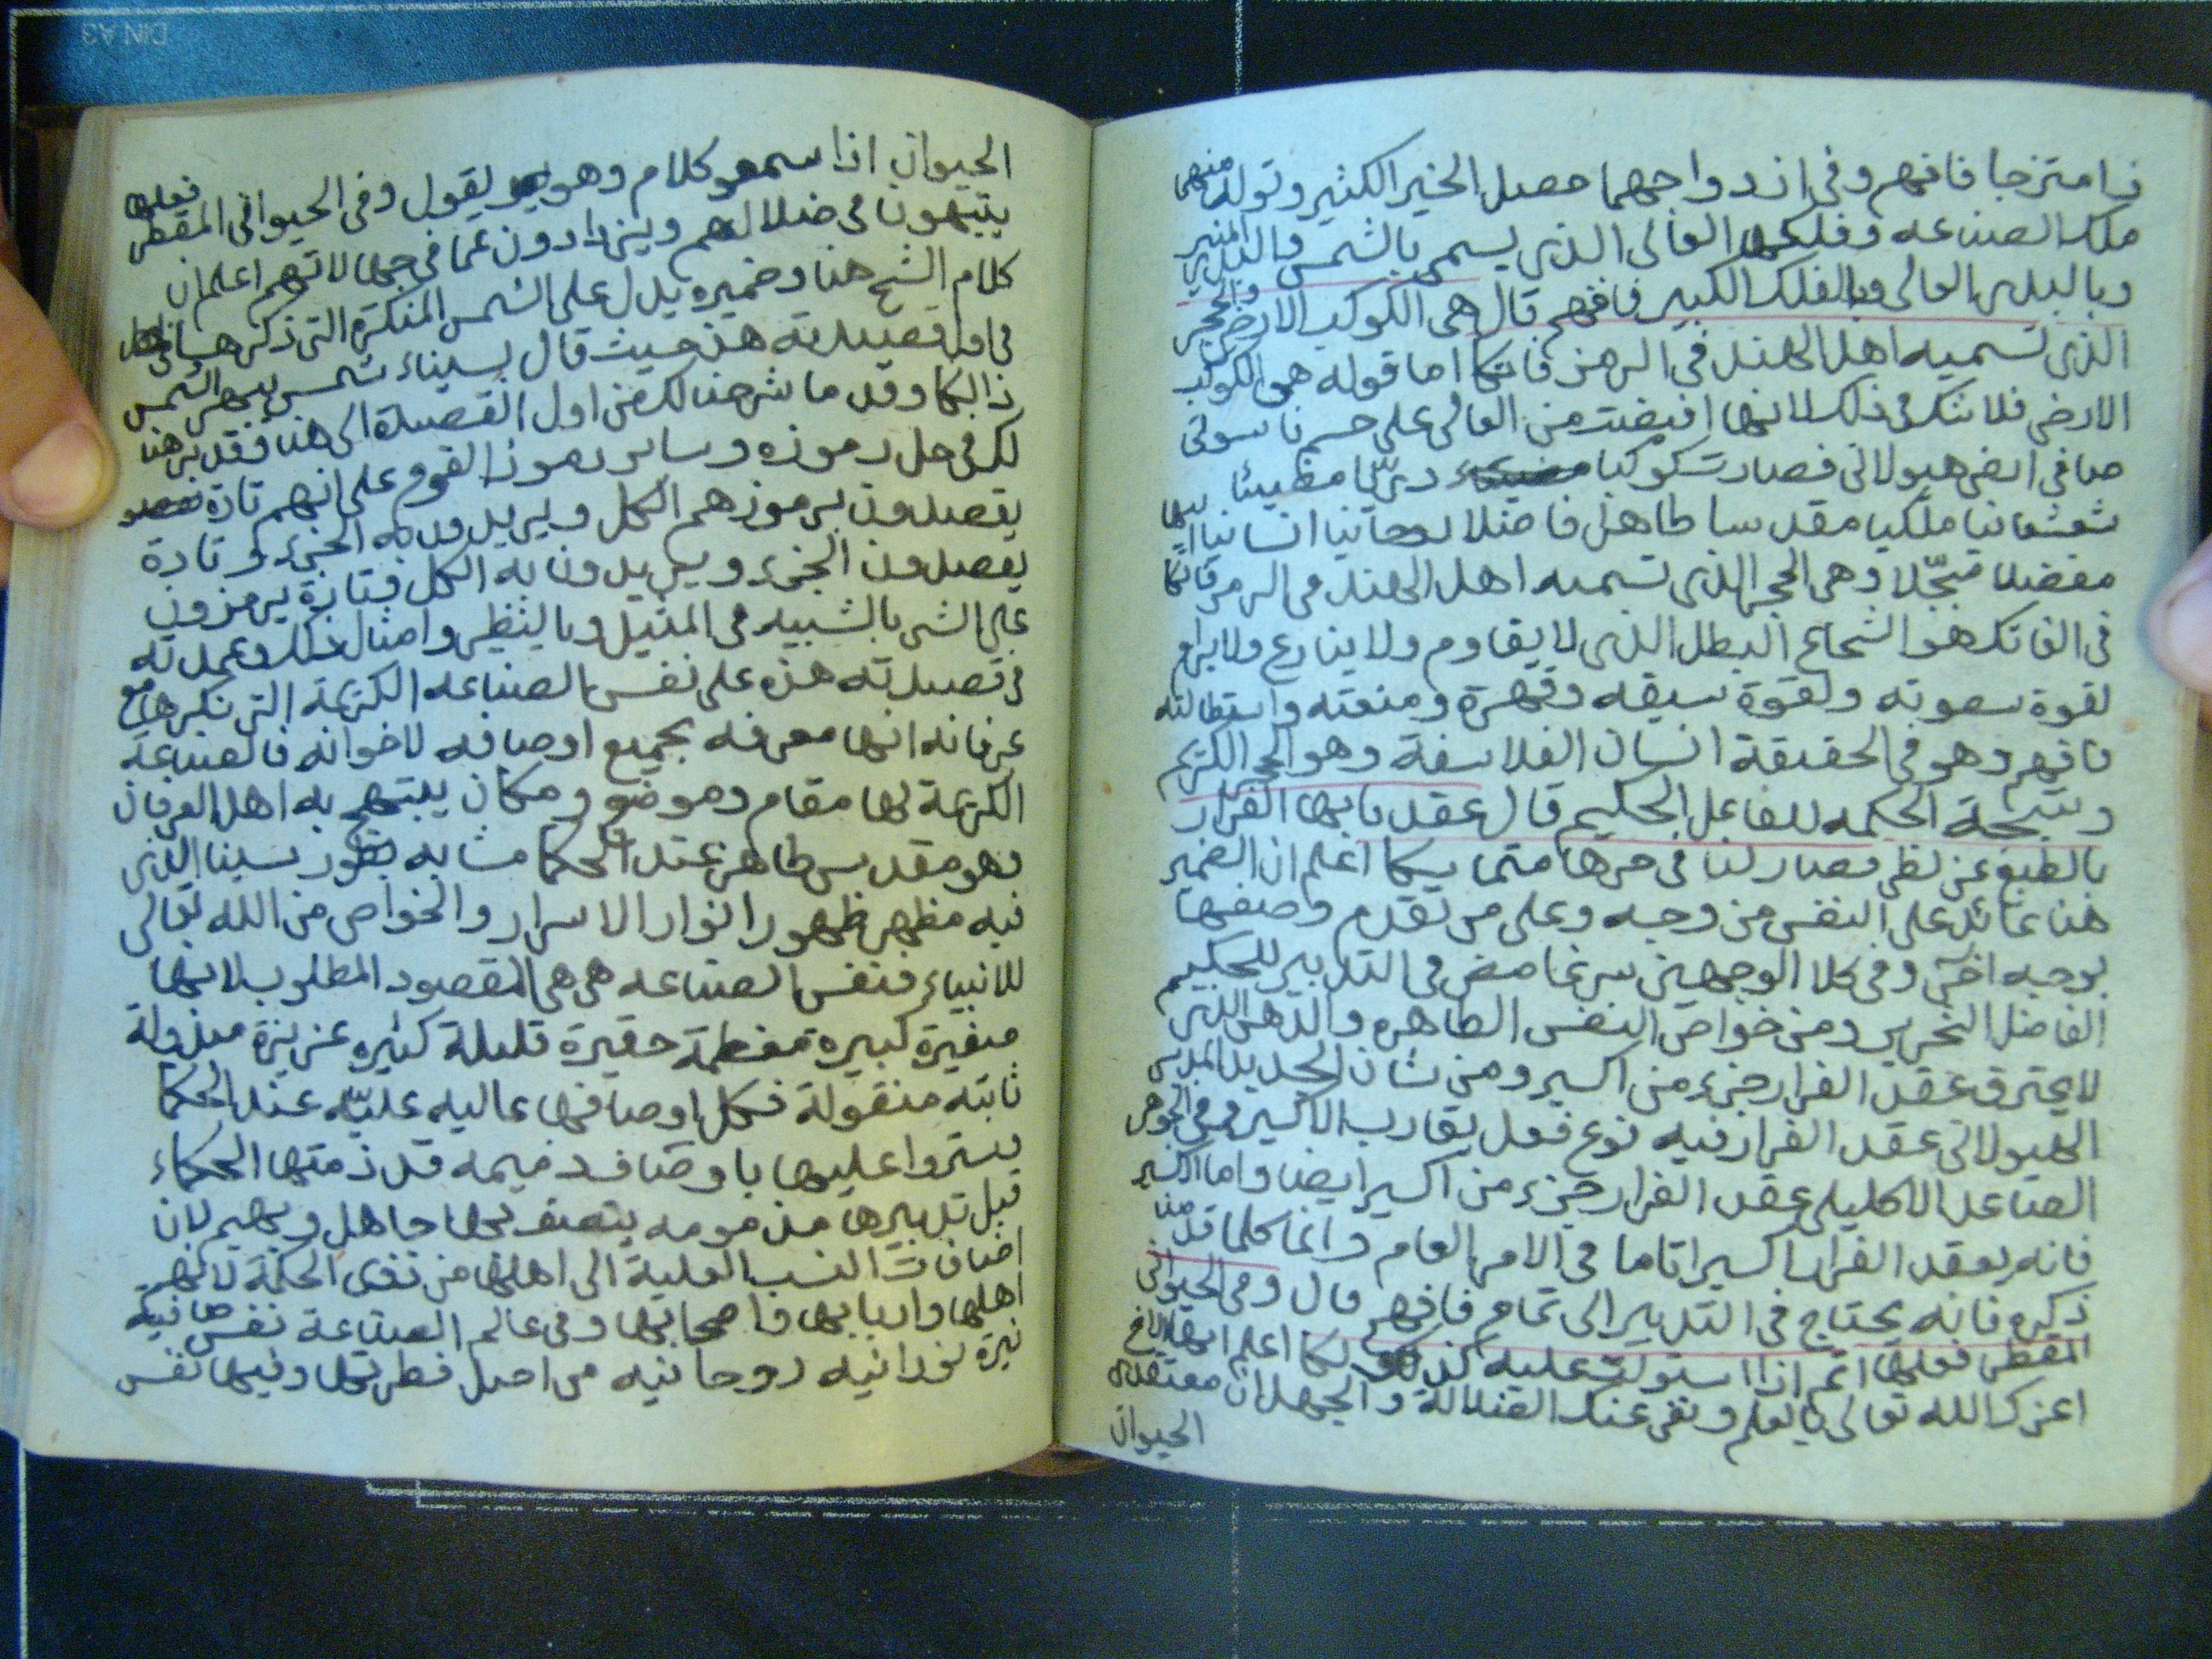 فامتزجا فافهم وفي ازدواجهما حصل الخير الكثير وتولد منهما
ملك الصناعه وفلكها العالى الذى يسمى بالشمس والبدر المنير
وبالبدر العالى وبالفلك الكبير فافهم قال هى الكوكب الارضى والحجر
الذى تسميه اهل الهند فى الرمز فاتكا اما قوله هى الكوكب
الارضى فلا شك فى ذلك لانها افيضت من العالى على جسم ناسوتى
صافى ارضى هيولانى فصارت كوكبا دريّا مضيئا
شعشعانيا ملكيا مقدسا طاهرا فاضلا روحانيا انسانيا
مفضلا مبجّلا وهى الحجر الذى تسميه اهل الهند فى الرمز فاتكا
فى الفاتك هو الشجاع البطل الذى لا يقاوم ولا ينازع ولا يرام
لقوة سموته ولقوة سبقه وقهرة ومنعته واستطالته
فافهم وهو فى الحقيقة انسان الفلاسفة وهو الحجر الكريم
ونتيجة الحكمه للفاعل الحكيم قال عقدنا بها الفرار
بالطبع عن لظى فصار لنا فى حرها متماسكا اعلم ان الضمير
هنا عائد على النفس من وجه وعلى من تقدم وصفها
بوجه اخر وفى كلا الوجهين سر غامض فى التدبير للحكيم
الفاضل النحرير ومن خواص النفس الطاهره والذهن الذى
لا يحترق عقد الفرار جزء من اكسير ومن شان الجديد المدبر
الهيولانى عقد الفرار فيه نوع فعل يقارب الاكسير وفى الجوهر
الصاعد الاكليلى عقد الفرار جزء من اكسير ايضا واما الاكسير
فانه يعقد الفرار اكسيرا تاما فى الامر العام وانما كلما قدمنا
ذكره فانه يحتاج فى التدبير الى تمام فافهم قال وفى الحيوانى
المقطر فعلها اتم اذا استولت عليه كذلكا اعلم ايها الاخ
اعزك الله تعالى بالعلم ونفى عنك الضلالة والجهل ان معتقدى
الحيوان
الحيوان اذا سمعو كلام وهو يقول وفى الحيوانى المقطر فعلها
يتيهون فى ضلالهم ويزدادون عما فى جهالاتهم اعلم ان
كلام الشيخ هنا وضميره يدل على الشمس المنكرة التى ذكرها
فى اول قصيدته هذه حيث قال بسيناء شمس يبهر الشمس
ذالكا وقد ما شرحنا لك من اول القصيدة الى هنا فقد
لك فى حل رموزه وساير رموز القوم على انهم تارة
يقصدون برموزهم الكل ويريدون به الجزء وتارة
يقصدون الجزء ويريدون به الكل وتارة يرمزون
على الشى بالشبيه فى المثيل وبالنظير وامثال ذلك وعمدته
فى قصيدته هذه على نفس الصناعه الكريمة التى نكرها مع
عرفانه انها معرفه بجميع اوصافه لاخوانه فالصناعة
الكريمة لها مقام وموضع ومكان يبتهج به اهل العرفان
فهو مقدس طاهر عند الحكما مشابه بطور سينا الذى
فيه مظهر ظهور انوار الاسرار والخواص من الله تعالى
للانبياء فنفس الصناعه هى هى المقصود المطلوب لانها
صغيرة كبيره معظمة حقيرة قليلة كثيره عزيزة مبذولة
ثابته منقولة فكل اوصافها عاليه عليّه عند الحكما
يستروا عليها باوصاف دميمه قد ذمتها الحكماء
قبل تدبيرها مذمومه يتصف بها جاهل وبهيم لان
اضافات النسب العلية الى اهلها من تقوى الحكمة لانهم
اهلها واربابها واصحابها وفى عالم الصناعة نفس صافية
نيرة نورانيه روحانيه من اصل فطرتها وفيها نفس